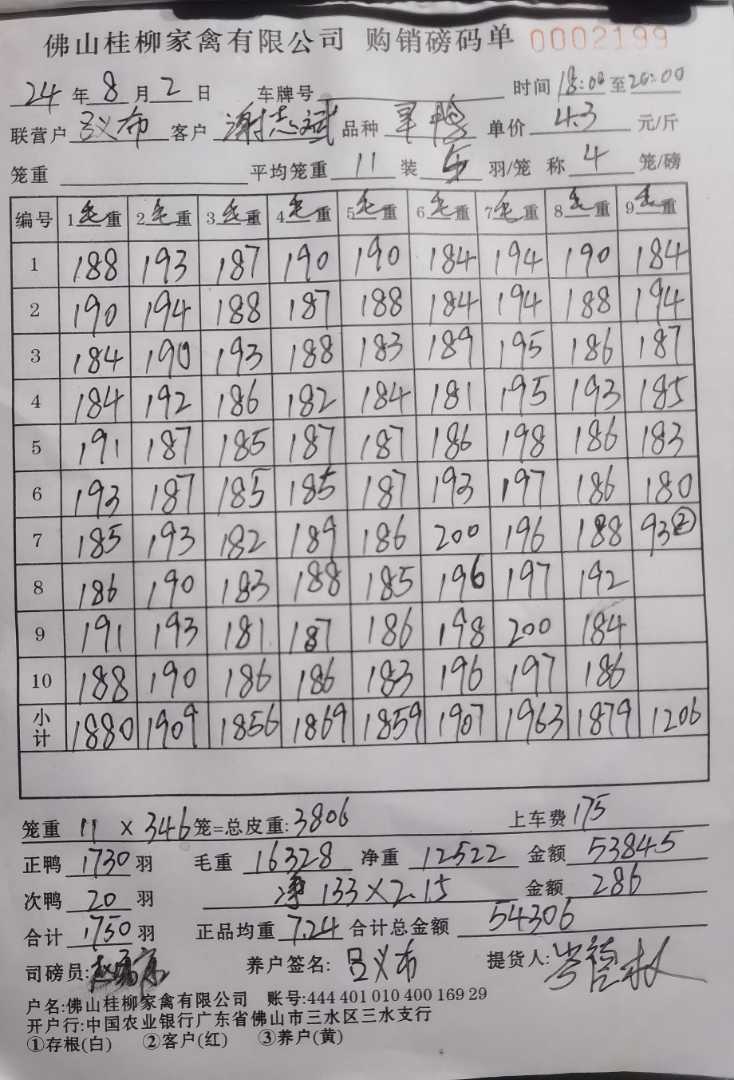 佛山桂柳家禽有限公司 购销磅码单 0002199
24 年 8 月 2 日 车牌号 时间 18:00 至 20:00
联营户 吕义布 客户 谢志斌 品种 单价 4.3 元/斤
笼重 平均笼重 11 装 5 羽/笼 称 4 笼/磅
编号 1 毛重 2 毛重 3 毛重 4 毛重 5 毛重 6 毛重 7 毛重 8 毛重 9 毛重
1 188 193 187 190 190 184 194 190 184
2 190 194 188 187 188 184 194 188 194
3 184 190 193 188 183 189 195 186 187
4 184 192 186 182 184 181 195 193 185
5 191 187 185 187 187 186 198 186 183
6 193 187 185 185 187 193 197 186 180
7 185 193 182 189 186 200 196 188 93②
8 186 190 183 188 185 196 197 192
9 191 193 181 187 186 198 200 184
10 188 190 186 186 183 196 197 186
小计 1880 1909 1856 1869 1859 1907 1963 1879 1206
笼重 11 × 346 笼=总皮重: 3806 上车费 175
正鸭 1730 羽 毛重 16328 净重 12522 金额 53845
次鸭 20 羽 净 133×2.15 金额 286
合计 1750 羽 正品均重 7.24 合计总金额 54306
司磅员: 养户签名: 吕义布 提货人:
户名:佛山桂柳家禽有限公司 账号:444 401 010 400 169 29
开户行:中国农业银行广东省佛山市三水区三水支行
①存根(白) ②客户(红) ③养户(黄)